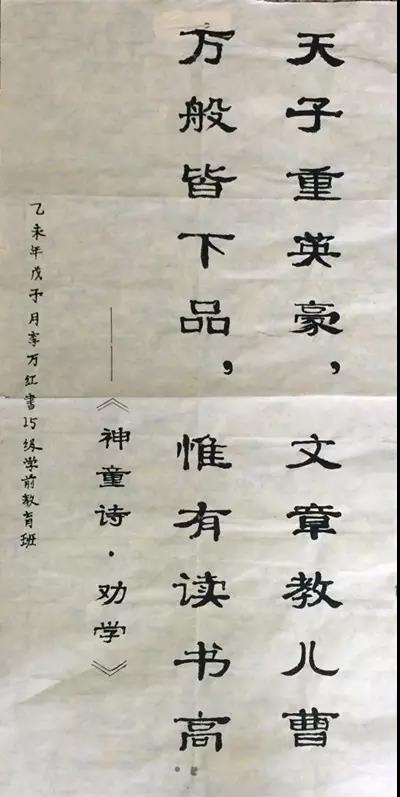 天子重英豪，文章教儿曹
万般皆下品，惟有读书高
——《神童诗·劝学》
乙未年戊子月李万红書15级学前教育班